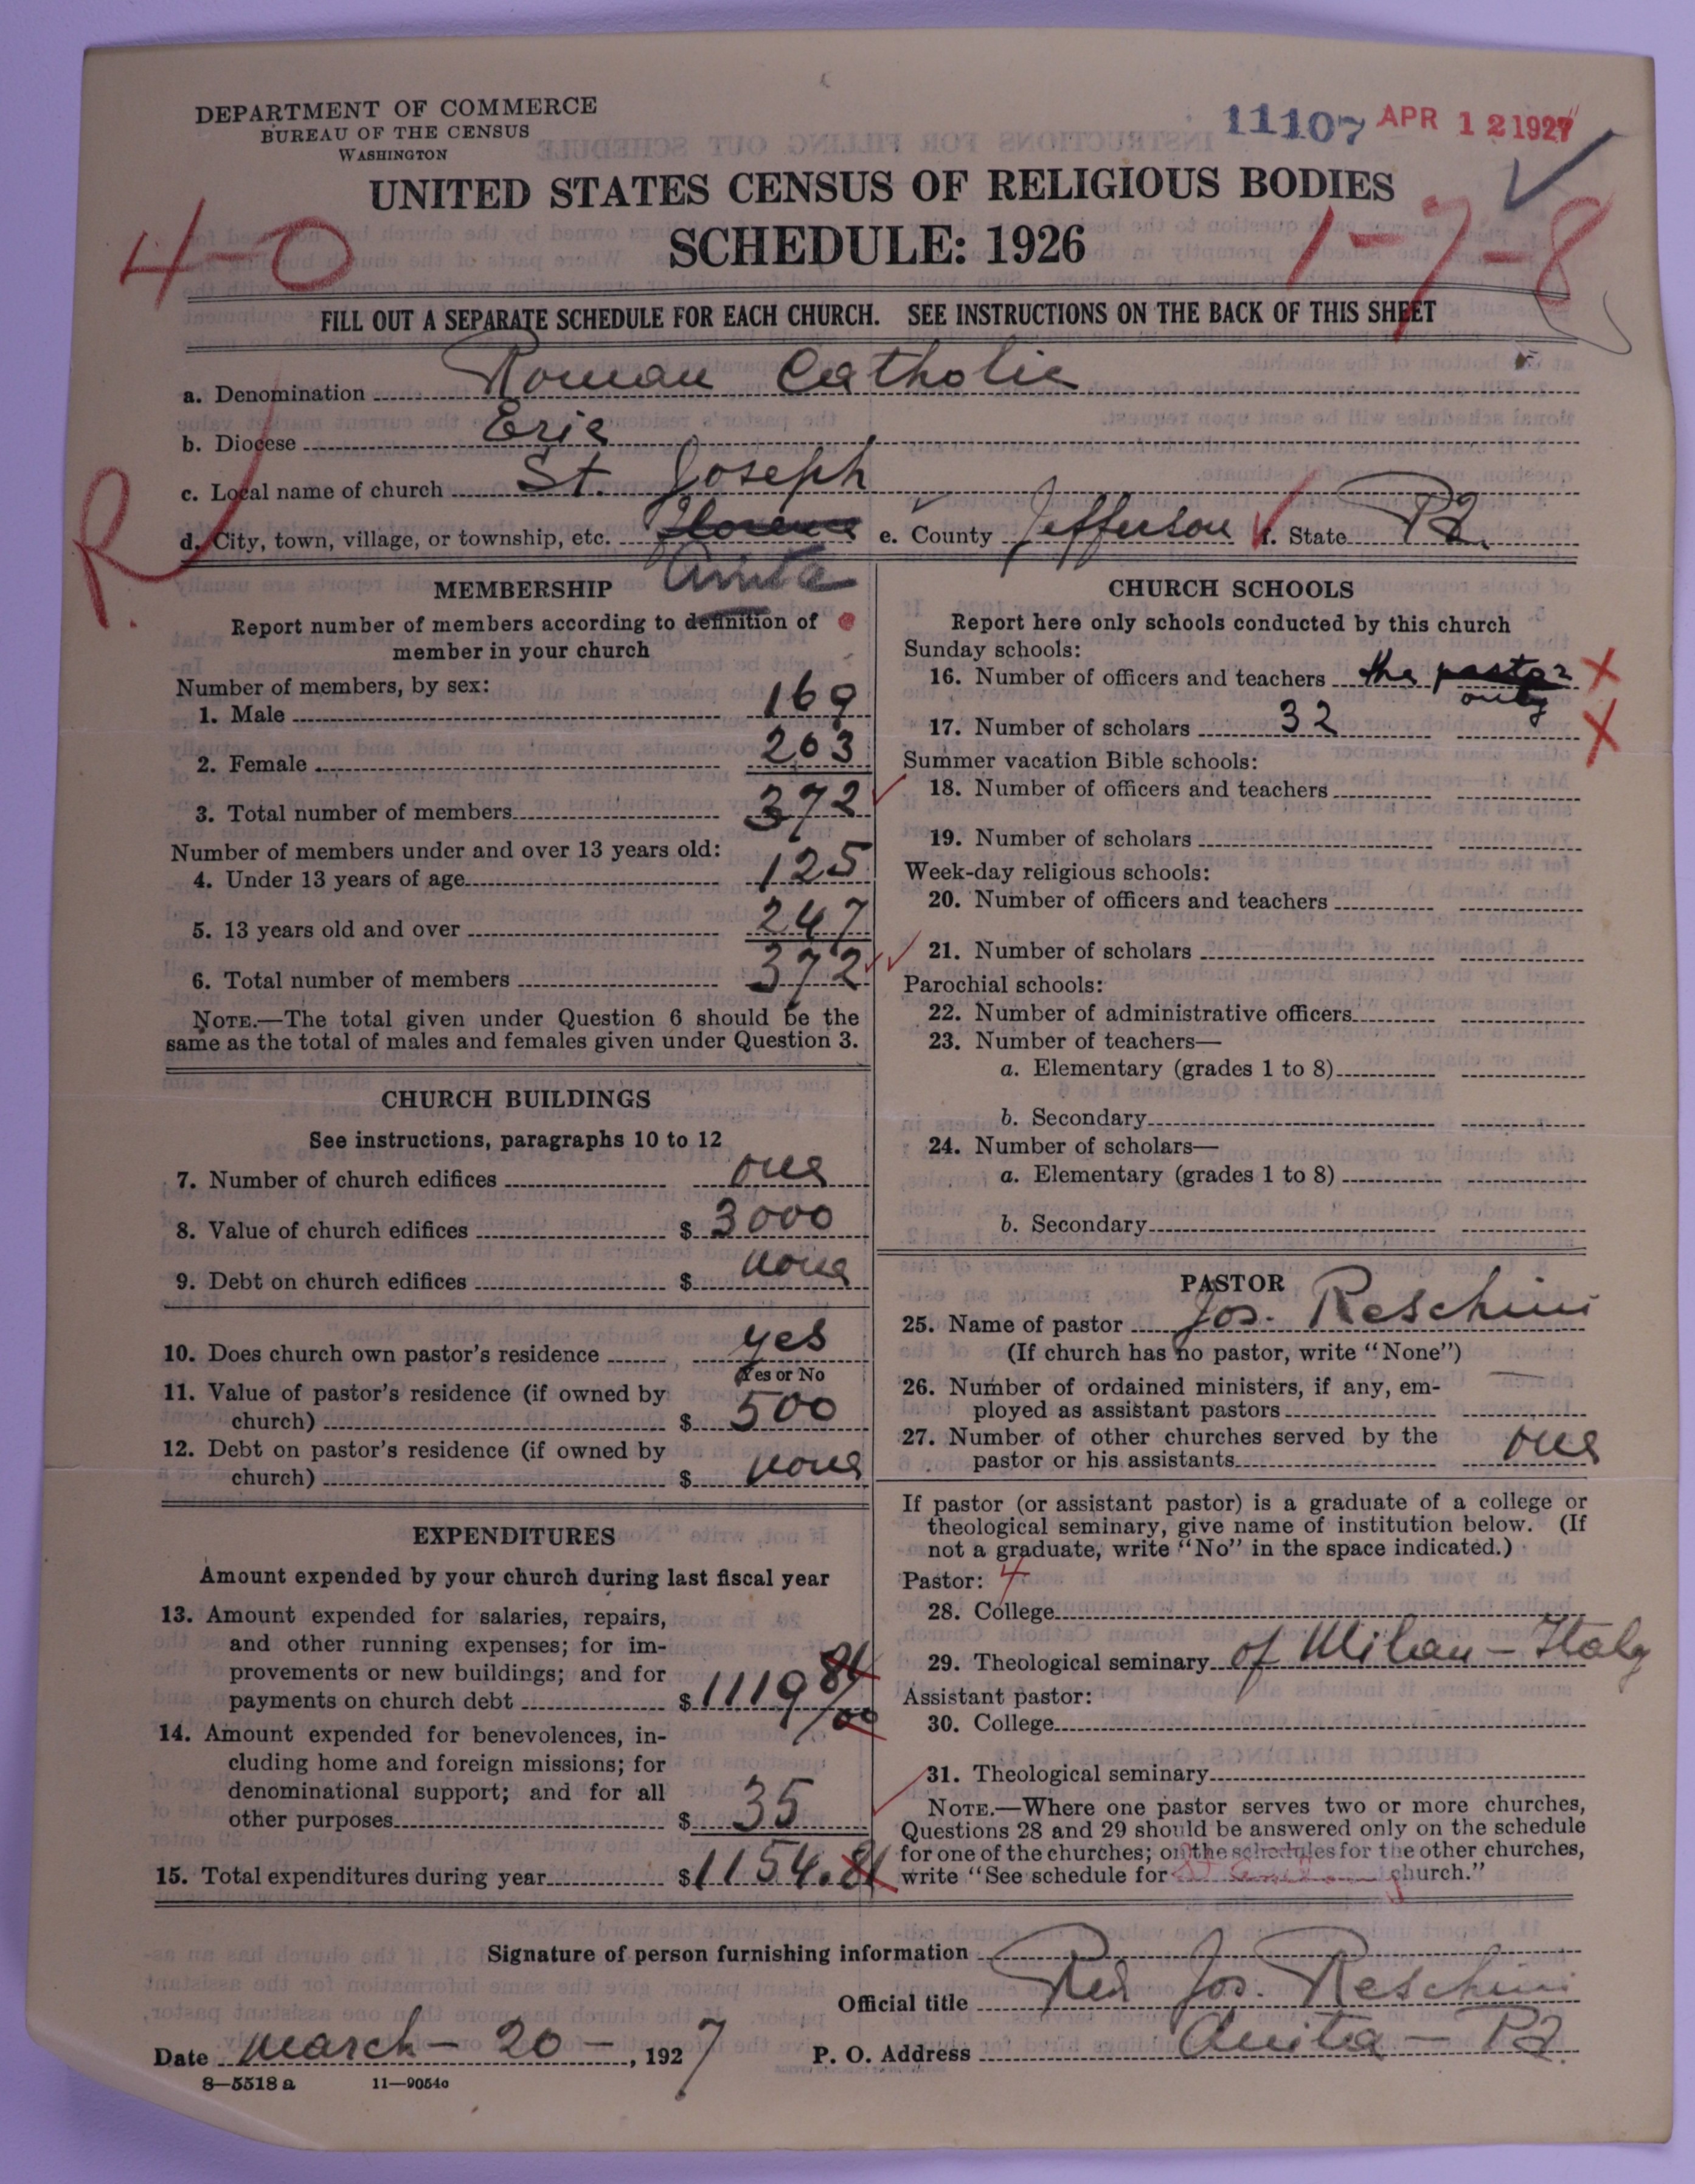 DEPARTMENT OF COMMERCE
BUREAU OF THE CENSUS
WASHINGTON
11107 APR 12 1927
UNITED STATES CENSUS OF RELIGIOUS BODIES
SCHEDULE: 1926
4-0
1-7-8
FILL OUT A SEPARATE SCHEDULE FOR EACH CHURCH. SEE INSTRUCTIONS ON THE BACK OF THIS SHEET
a. Denomination Roman Catholic
b. Diocese Erie
c. Local name of church St. Joseph
R.
d. City, town, village, or township, etc. Florence Anita e. County Jefferson f. State Pa.
MEMBERSHIP
Report number of members according to definition of
member in your church
Number of members, by sex:
1. Male 169
2. Female 203
3. Total number of members 372
Number of members under and over 13 years old:
4. Under 13 years of age 125
5. 13 years old and over 247
6. Total number of members 372
NOTE.—The total given under Question 6 should be the
same as the total of males and females given under Question 3.
CHURCH BUILDINGS
See instructions, paragraphs 10 to 12
7. Number of church edifices one
8. Value of church edifices $ 3000
9. Debt on church edifices $ none
10. Does church own pastor's residence yes
Yes or No
11. Value of pastor's residence (if owned by
church) $ 500
12. Debt on pastor's residence (if owned by
church) $ none
EXPENDITURES
Amount expended by your church during last fiscal year
13. Amount expended for salaries, repairs,
and other running expenses; for im-
provements or new buildings; and for
payments on church debt $ 1119 84/00
14. Amount expended for benevolences, in-
cluding home and foreign missions; for
denominational support; and for all
other purposes $ 35
15. Total expenditures during year $ 1154.84
CHURCH SCHOOLS
Report here only schools conducted by this church
Sunday schools:
16. Number of officers and teachers the pastor only X
17. Number of scholars 32 X
Summer vacation Bible schools:
18. Number of officers and teachers
19. Number of scholars
Week-day religious schools:
20. Number of officers and teachers
21. Number of scholars
Parochial schools:
22. Number of administrative officers
23. Number of teachers—
a. Elementary (grades 1 to 8)
b. Secondary
24. Number of scholars—
a. Elementary (grades 1 to 8)
b. Secondary
PASTOR
25. Name of pastor Jos. Reschini
(If church has no pastor, write "None")
26. Number of ordained ministers, if any, em-
ployed as assistant pastors —
27. Number of other churches served by the
pastor or his assistants one
If pastor (or assistant pastor) is a graduate of a college or
theological seminary, give name of institution below. (If
not a graduate, write "No" in the space indicated.)
Pastor: 4
28. College
29. Theological seminary of Milan - Italy
Assistant pastor:
30. College
31. Theological seminary
NOTE.—Where one pastor serves two or more churches,
Questions 28 and 29 should be answered only on the schedule
for one of the churches; on the schedules for the other churches,
write "See schedule for church."
Signature of person furnishing information
Official title Rev Jos. Reschini
Date March - 20 - , 1927 P. O. Address Anita - Pa.
8—5518 a 11—9054a